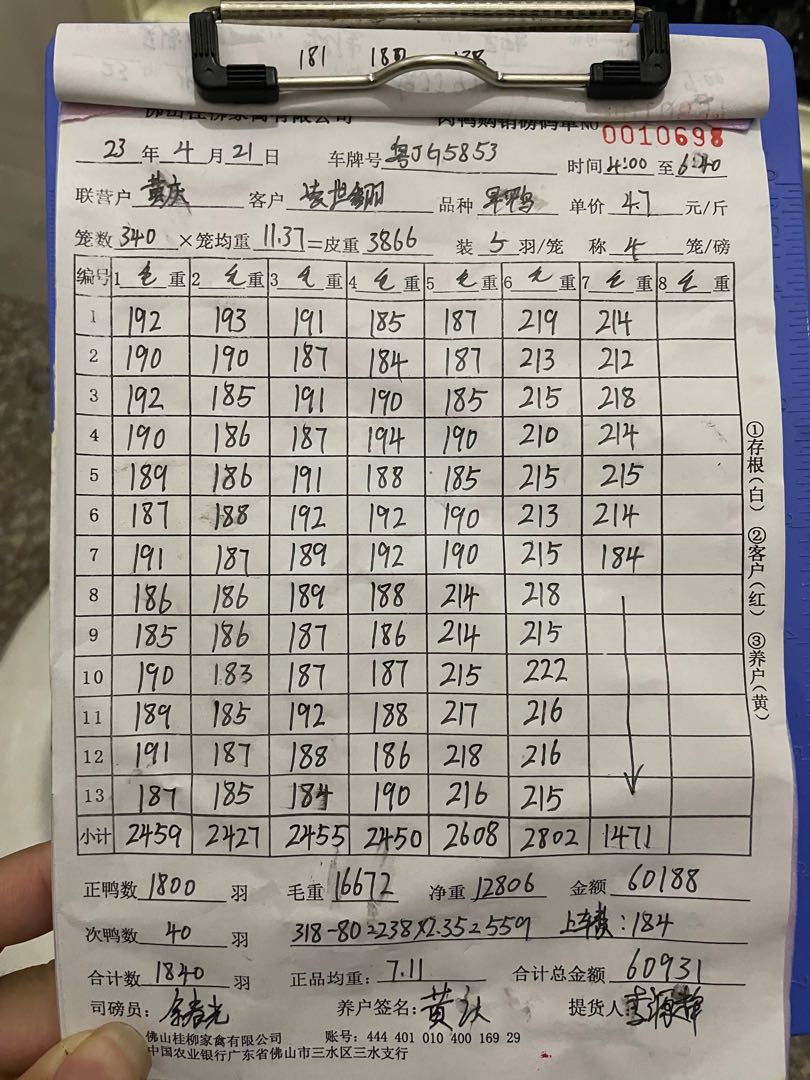 181 188 138
佛山桂柳家禽有限公司 肉鸭购销磅码单 NO 0010698
23 年 4 月 21 日 车牌号 粤JG5853 时间 4:00 至 6:40
联营户 黄庆 客户 品种 旱鸭 单价 4.7 元/斤
笼数 340 ×笼均重 11.37 =皮重 3866 装 5 羽/笼 称 4 笼/磅
编号 1 毛 重 2 毛 重 3 毛 重 4 毛 重 5 毛 重 6 毛 重 7 毛 重 8 毛 重
1 192 193 191 185 187 219 214
2 190 190 187 184 187 213 212
3 192 185 191 190 185 215 218
4 190 186 187 194 190 210 214
5 189 186 191 188 185 215 215
6 187 188 192 192 190 213 214
7 191 187 189 192 190 215 184
8 186 186 189 188 214 218
9 185 186 187 186 214 215
10 190 183 187 187 215 222
11 189 185 192 188 217 216
12 191 187 188 186 218 216
13 187 185 184 190 216 215
小计 2459 2427 2455 2450 2608 2802 1471
正鸭数 1800 羽 毛重 16672 净重 12806 金额 60188
次鸭数 40 羽 318-80=238×2.35=559 上车费:184
合计数 1840 羽 正品均重: 7.11 合计总金额 60931
司磅员: 余春光 养户签名: 黄庆 提货人:
佛山桂柳家禽有限公司 账号: 444 401 010 400 169 29
中国农业银行广东省佛山市三水区三水支行
①存根(白) ②客户(红) ③养户(黄)